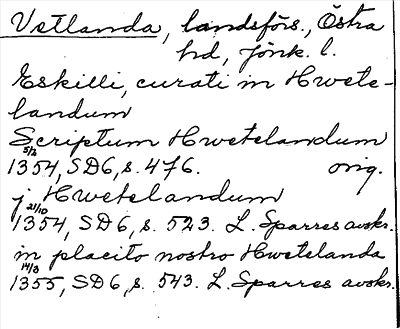 Vetlanda, landsförs., Östra
hd, Jönk. l.
Eskilli, curati in Hwete-
landum
Scriptum Hwetelandum
5/2 1354, SD6, s. 476. orig.
j Hwetelandum
21/10 1354, SD6, s. 523. L. Sparres avskr.
in placito nostro Hwetelanda
14/3 1355, SD6, s. 543. L. Sparres avskr.